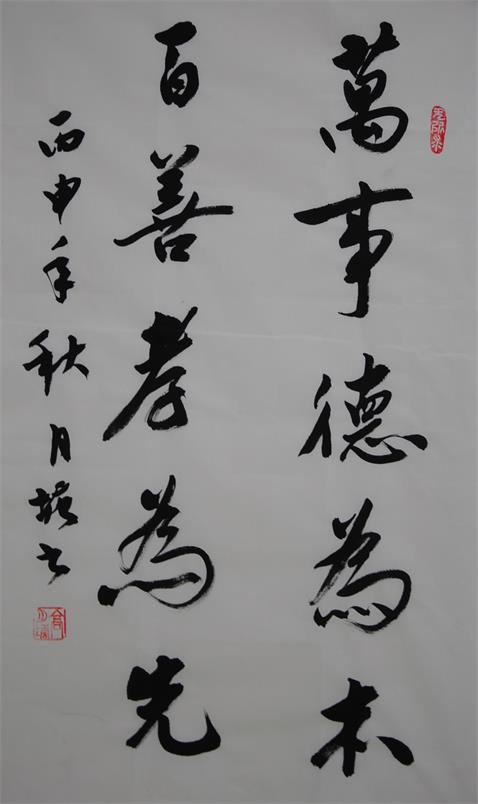 萬事德為本
百善孝為先
丙申年秋月